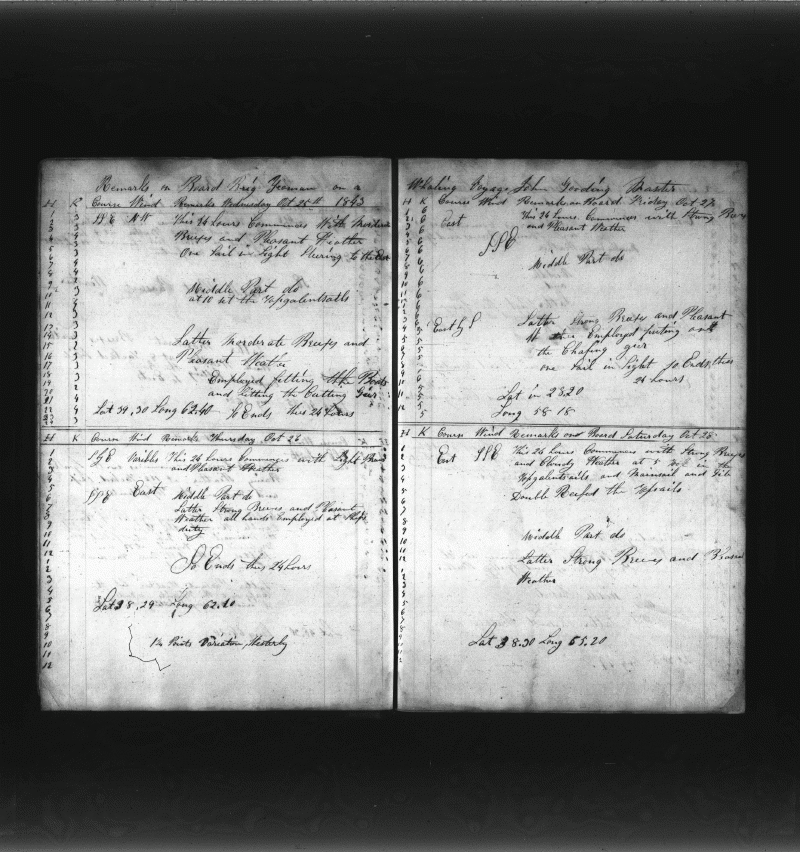 Remarks on Board Brig Yeoman on a
H K Course Wind Remarks Wednesday Oct 25th 1843
NW This 24 hours Commences With
Breezes and Pleasant Weather
One Sail in Sight Steering to the
Middle Part do
at 10 set the Topgalentsails
Latter Moderate Breezes and
Pleasant
Employed fitting the Boats
and Fitting the Cutting Geer
Lat 39,30 Long 62.40 So Ends this 24 hours
H K Course Wind Remarks Thursday Oct 26
Varibles This 24 hours Commences with Light
and Pleasent Weather
East Middle Part do
Latter Strong Breezes and Pleasant
Weather all hands Employed at Ships
duty
So Ends this 24 hours
Lat 38,29 Long 62.10
1¼ Points Variation, Westerly
Whaling Voyage John Gooding Master
H K Course Wind Remarks on Board Friday Oct 27
East This 24 hours Commences with Strong
and Pleasant Weather
SSE
Middle Part do
East by S Latter Strong Breezes and Pleasant
Employed puting on
the Chafing geer
one Sail in Sight So Ends this
24 hours
Lat in 38 20
Long 58 18
H K Course Wind Remarks on Board Saturday Oct 28
East SSE This 24 hours Commences with Strong
and Cloudy Weather at 5 in the
Topgalentsails and Mainsail and
Double Reefed the Topsails
Middle Part do
Latter Strong Breezes and
Weather
Lat 38.30 Long 55.20